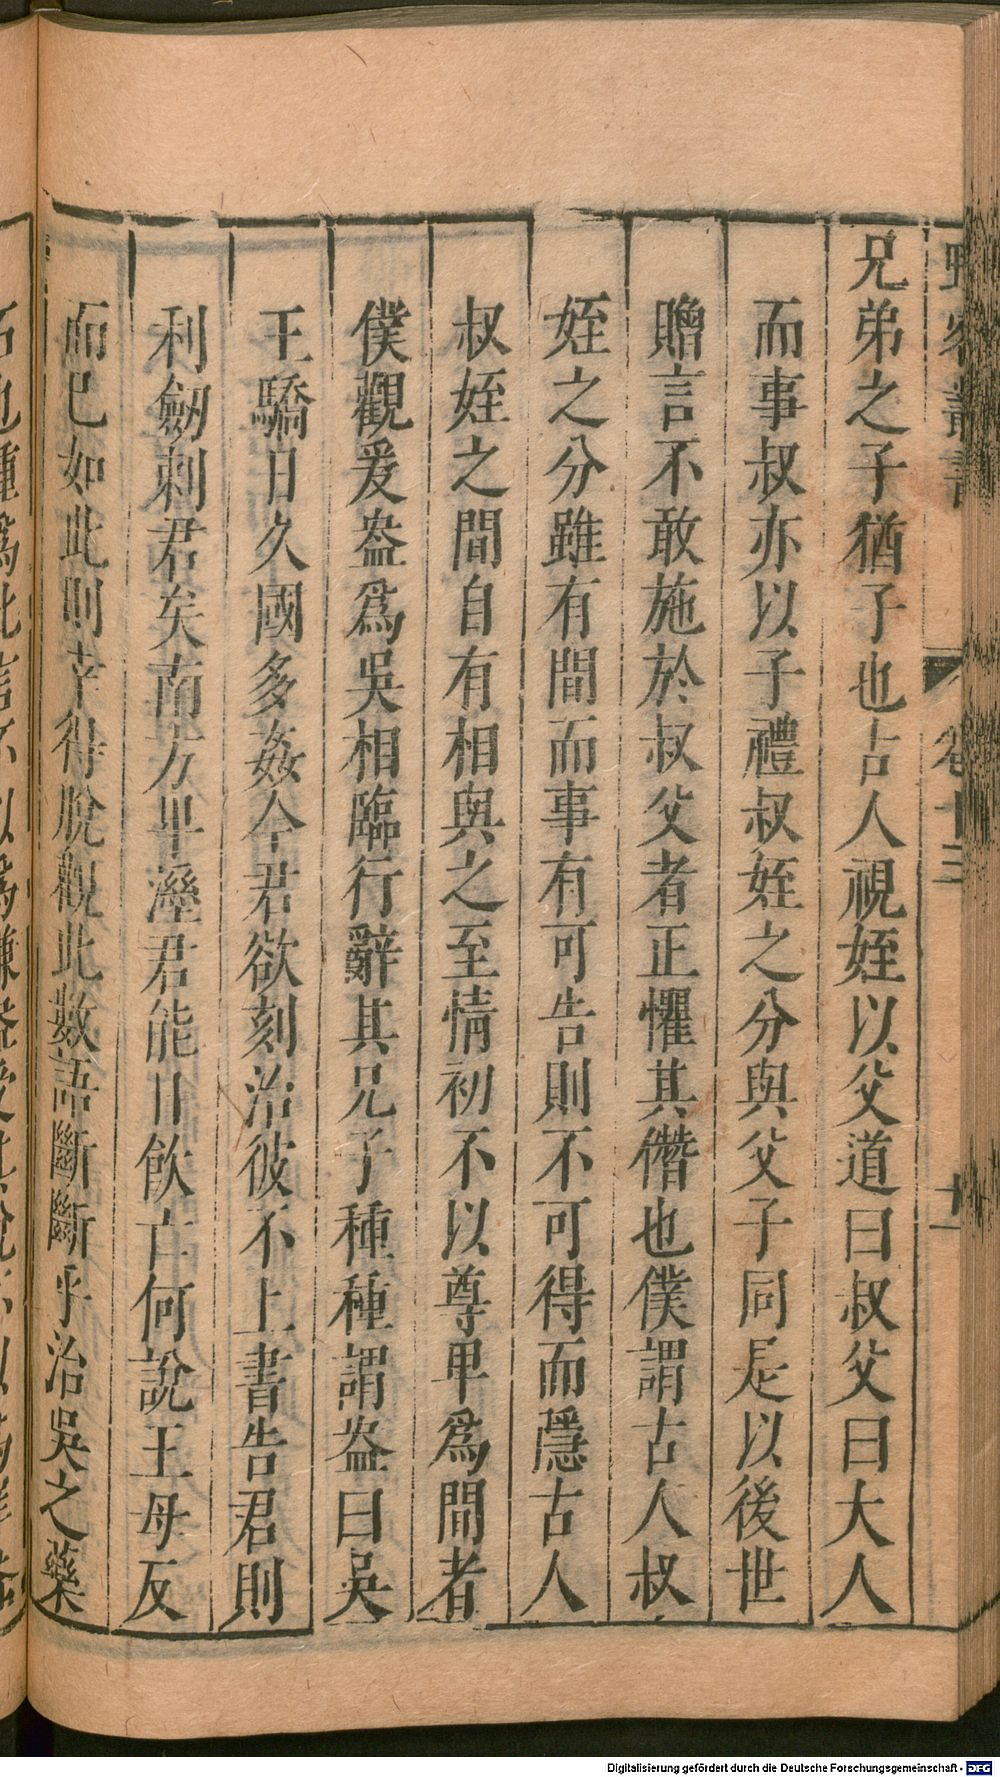 野客叢書
卷十三
十一
兄弟之子猶子也古人視姪以父道曰叔父曰大人
而事叔亦以子禮叔姪之分與父子同是以後世
贈言不敢施於叔父者正懼其僭也僕謂古人叔
姪之分雖有間而事有可告則不可得而隱古人
叔姪之間自有相與之至情初不以尊卑爲間者
僕觀爰盎爲吳相臨行辭其兄子種種謂盎曰吳
王驕日久國多姦今君欲刻治彼不上書告君則
利劒刺君矣南方卑溼君能日飲亡何說王毋反
而已如此則幸得脫觀此數語斷斷乎治吳之藥
Digitalisierung gefördert durch die Deutsche Forschungsgemeinschaft - DFG